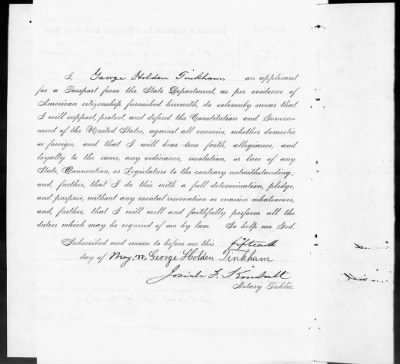 I, George Holden Tinkham an applicant
for a Passport from the State Department, as per evidence of
American citizenship furnished herewith, do solemnly swear that
I will support, protect, and defend the Constitution and Govern-
ment of the United States, against all enemies, whether domestic
or foreign, and that I will bear true faith, allegiance, and
loyalty to the same, any ordinance, resolution, or law of any
State, Convention, or Legislature to the contrary notwithstanding,
and, further, that I do this with a full determination, pledge,
and purpose, without any mental reservation or evasion whatsoever,
and, further, that I will well and faithfully perform all the
duties which may be required of me by law. So help me God.
Subscribed and sworn to before me this fifteenth
day of May, George Holden Tinkham
Josiah F. Kimball
Notary Public